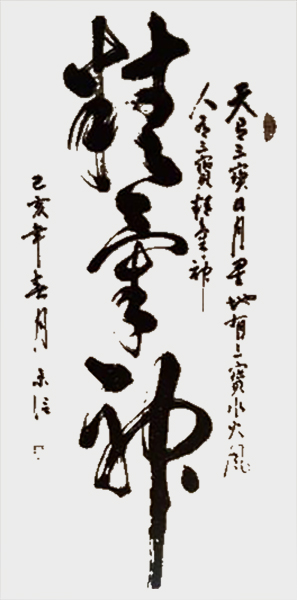 天有三寳日月星地有三寳水火風
人有三寳精氣神
精氣神
己亥年春月